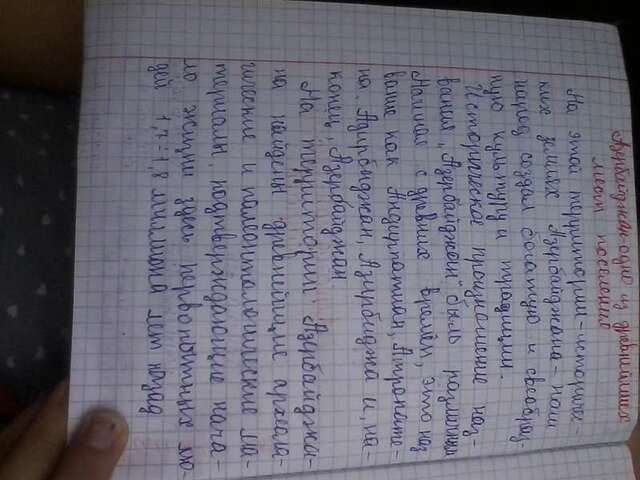 Азербайджан-одно из древнейших
мест поселений
На этой территории-историчес-
ких землях Азербайджана-наш
народ создал богатую и своеобраз-
ную культуру и традиции.
Историческое произношение наз-
вания „Азербайджан" было различным
Начиная с древних времён, это наз
вание как Андирпатиан, Атропате-
на, Адирбиджан, Азирбиджа и, на-
конец, Азербайджан
На территории Азербайджа-
на найдены древнейшие архео-
гические и полеонтологические ма-
териалы, подтверждающие нача-
ло жизни здесь первобытных лю-
дей 1,7-1,8 миллиона лет назад